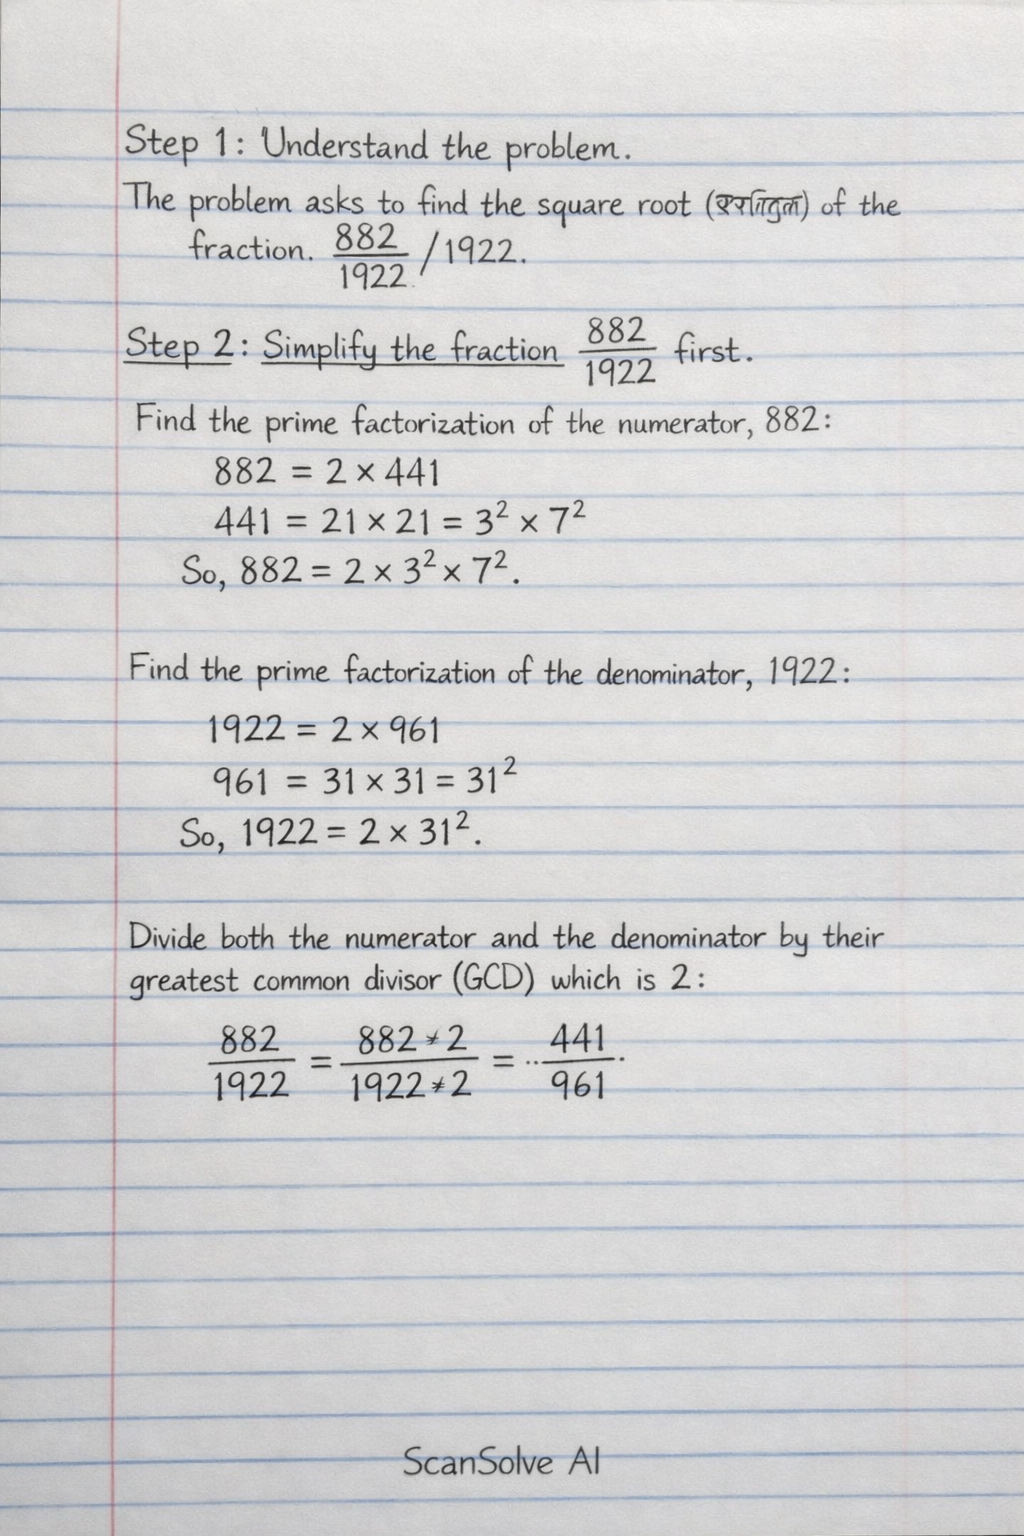 Step 1: Understand the problem.
The problem asks to find the square root () of the
fraction. 882/1922 /1922.
Step 2: Simplify the fraction 882/1922 first.
Find the prime factorization of the numerator, 882:
882 = 2 × 441
441 = 21 × 21 = 3² × 7²
So, 882 = 2 × 3² × 7².
Find the prime factorization of the denominator, 1922:
1922 = 2 × 961
961 = 31 × 31 = 31²
So, 1922 = 2 × 31².
Divide both the numerator and the denominator by their
greatest common divisor (GCD) which is 2:
882/1922 = 882 * 2/1922 * 2 = 441/961
ScanSolve AI